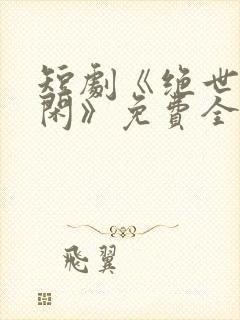 短劇《絶世
閑》免費全
飛翼